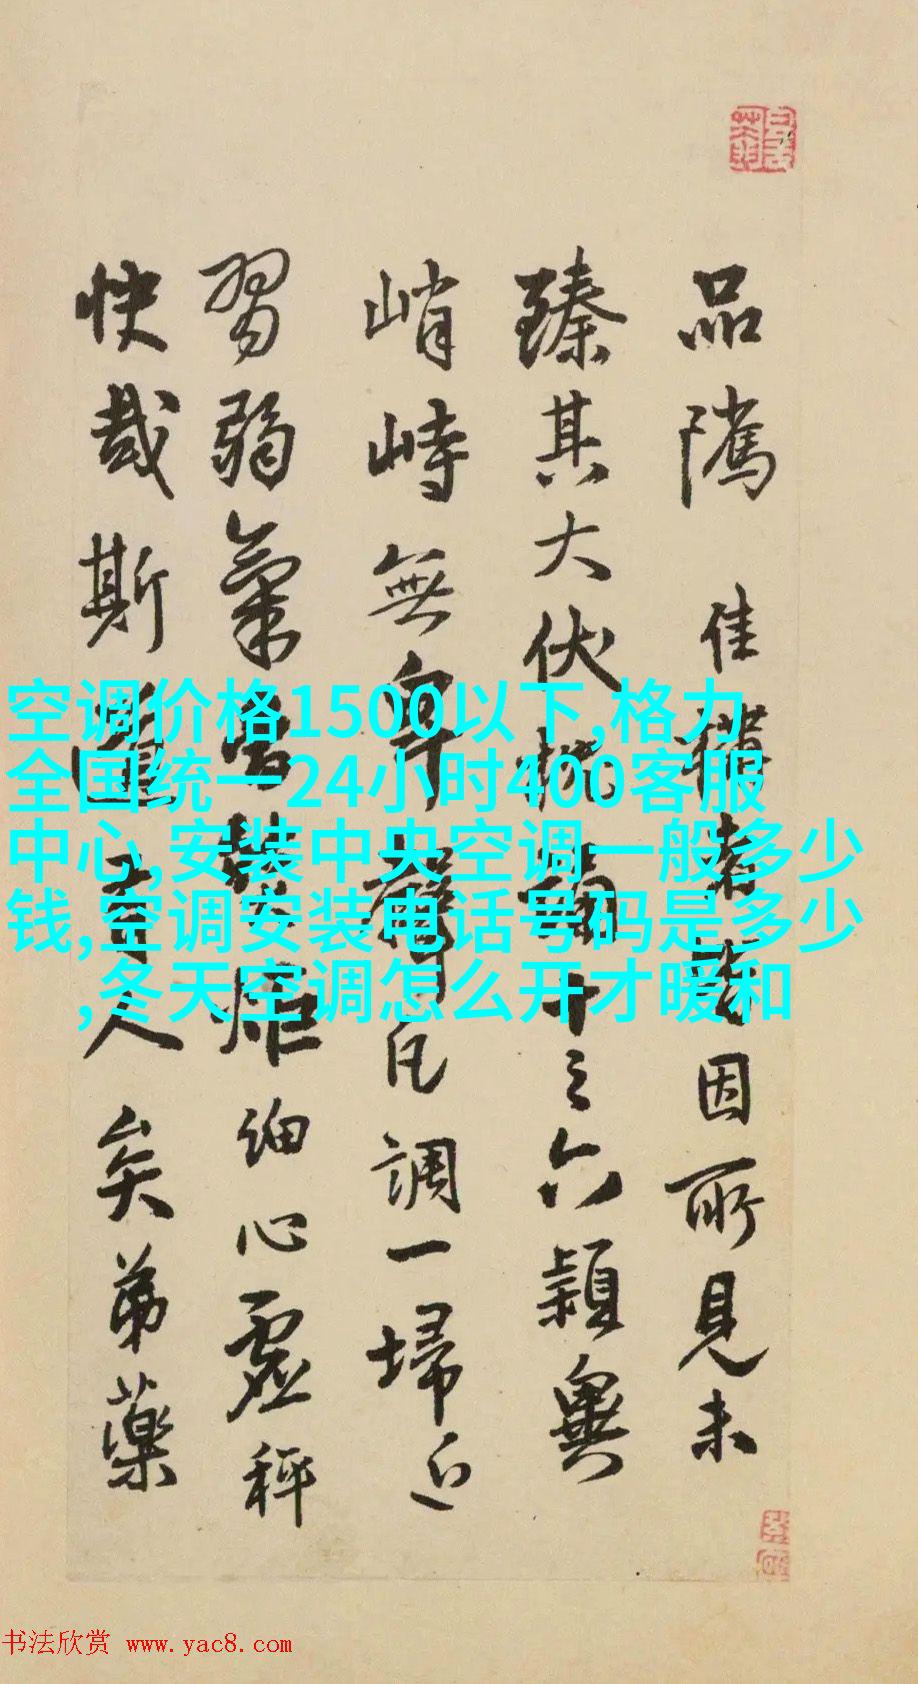 品隲佳者因所見未
臻其大伏十之六穎異
峭峙無卑凡調一埽近
習弱氣細心虛秤
快哉斯人矣弟藥
空调价格1500以下,格力
全国统一24小时400客服
中心,安装中央空调一般多少
钱,空调安装电话号码是多少
,冬天空调怎么开才暖和
书法欣赏 www.yac8.com